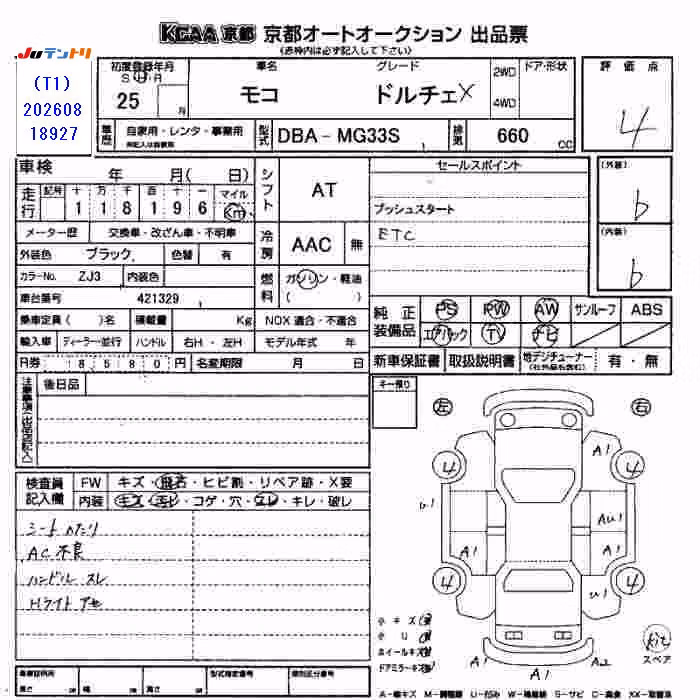 KCAA 京都 京都オートオークション 出品票
(赤枠内は必ず記入して下さい)
JUテントリ
(T1)
202608
18927
初度登録年月
S H R
25 月
車名
モコ
グレード
ドルチェX
2WD
4WD
ドア・形状
評価点
4
車歴
自家用・レンタ・事業用
型式
DBA-MG33S
排気
660 CC
車検 年 月( 日)
走行
記号 十 万 千 百 十 一 マイル
1 1 8 1 9 6 Km
メーター歴 交換車・改ざん車・不明車
外装色 ブラック 色替 有
カラーNo. ZJ3 内装色
車台番号 421329
乗車定員( )名 積載量 Kg
NOX 適合・不適合
輸入車 ディーラー・並行 ハンドル 右H・左H モデル年式 年
R券 8580円 名変期限 月 日
シフト AT
冷房 AAC 無
燃料 ガソリン・軽油
( )
セールスポイント
プッシュスタート
ETC
(外装)
b
(内装)
b
純正装備品
PS PW AW サンルーフ ABS
エアバック TV ナビ
新車保証書 取扱説明書 地デジチューナー 有・無
注意事項(出品店記入)
後日品
キー預り
左 右
検査員記入欄
FW キズ・飛石・ヒビ割・リペア跡・X要
内装 キズ・汚レ・コゲ・穴・スレ・キレ・破レ
シートへたり
AC不良
ハンドルスレ
Hライトアセ
4 4
4 4
A1
U1
AU1
A1 A1
U1
A1 A1 A2
小キズ
小U
ホイールキズ
ドアミラーキズ
kit
スペア
長さ cm 幅 cm 高さ cm
型式指定番号 類別区分番号